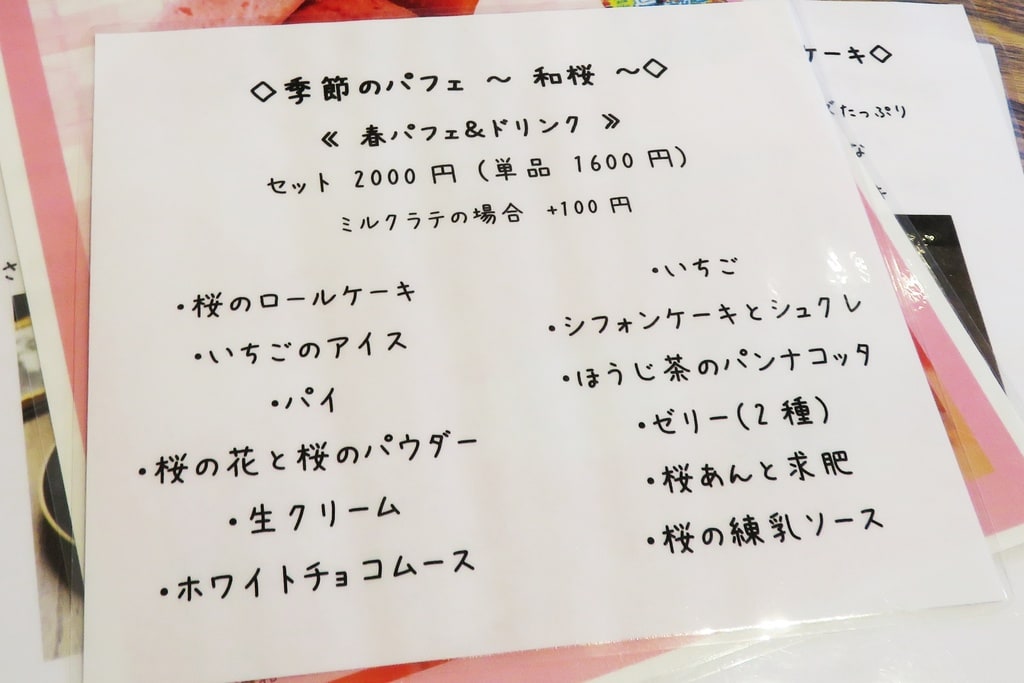 ◇季節のパフェ ～ 和桜 ～◇
≪ 春パフェ&ドリンク ≫
セット 2000 円 (単品 1600 円)
ミルクラテの場合 +100 円
・桜のロールケーキ
・いちごのアイス
・パイ
・桜の花と桜のパウダー
・生クリーム
・ホワイトチョコムース
・いちご
・シフォンケーキとシュクレ
・ほうじ茶のパンナコッタ
・ゼリー(2 種)
・桜あんと求肥
・桜の練乳ソース
ケーキ◇
たっぷり
な